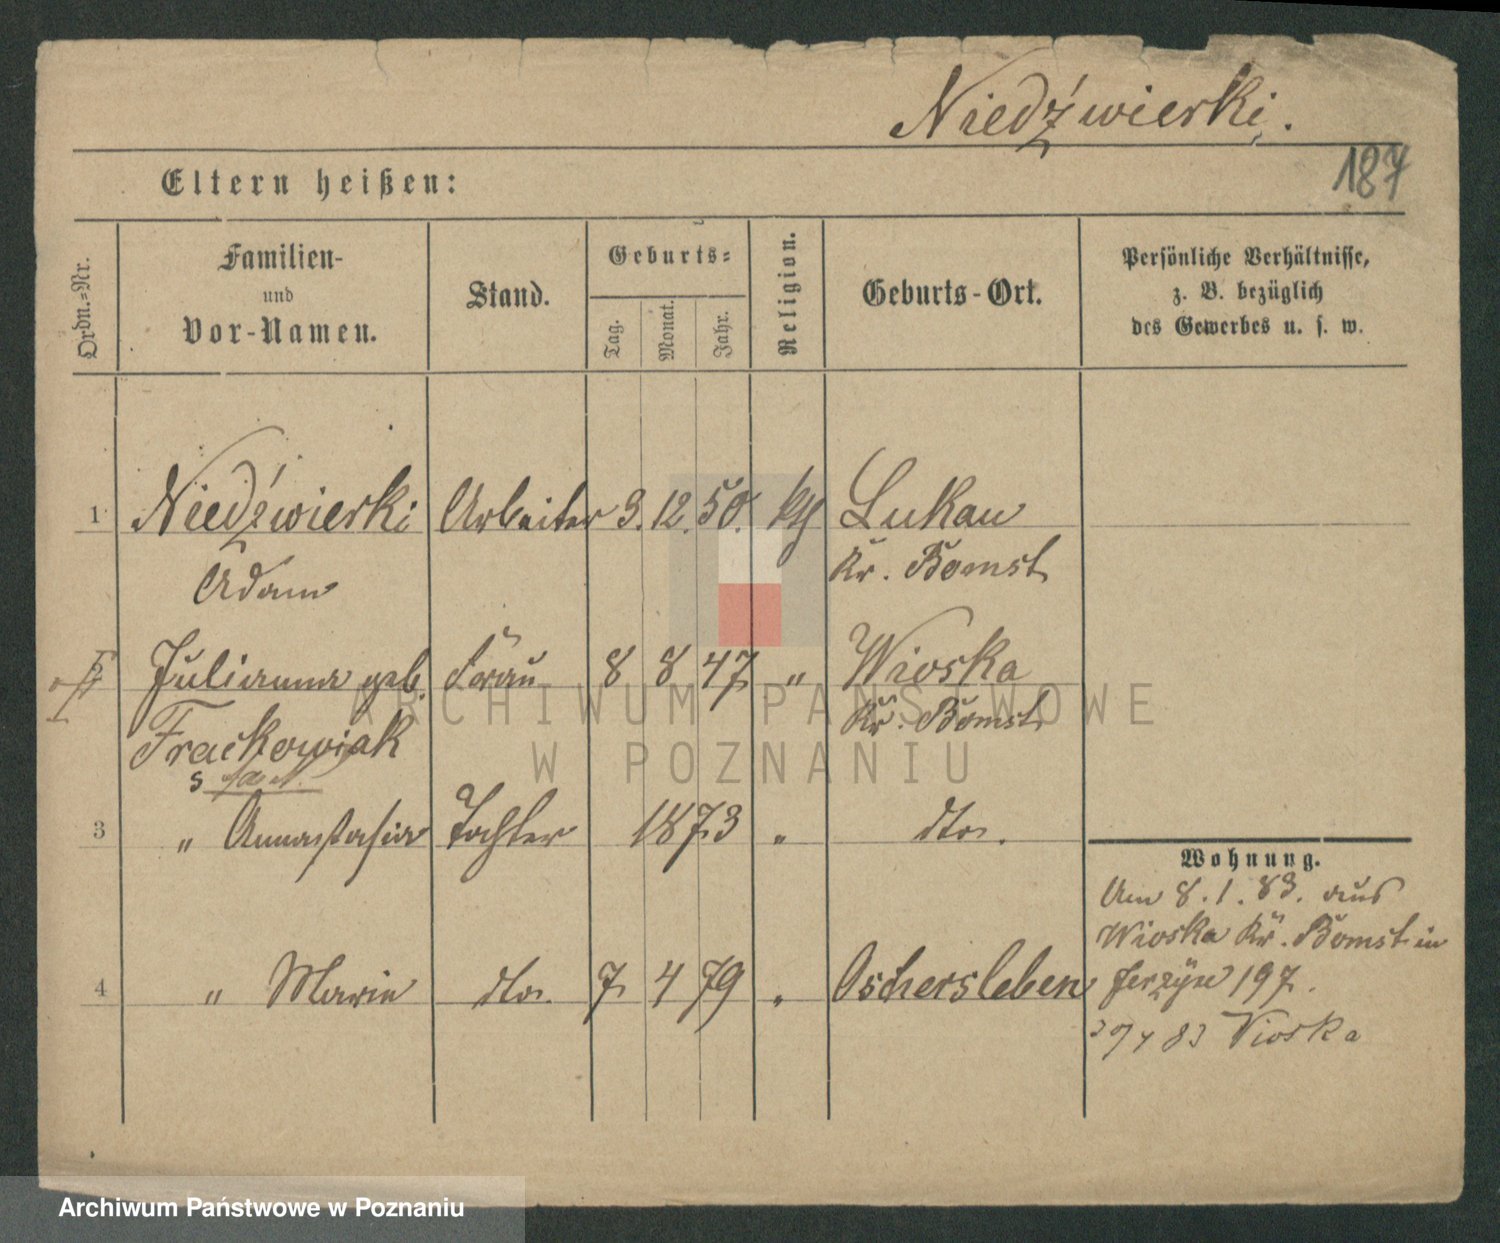 Niedźwierki.
187
Eltern heißen:
Ordn.=Nr.
Familien-
und
Vor-Namen.
Stand.
Geburts=
Tag.
Monat.
Jahr.
Religion.
Geburts-Ort.
Persönliche Verhältnisse,
z. B. bezüglich
des Gewerbes u. s. w.
1 Niedźwierki Arbeiter 3. 12. 50. kth Lukau
Adam Kr. Bomst
Julianna geb. Frau 8 8 47 " Wioska
Frackowiak Kr. Bomst
3 " Annastasia Tochter 1873 " dto.
Wohnung.
Am 8. 1. 83. aus
Wioska Kr. Bomst in
4 " Marie dto. 7 4 79 " Oschersleben
Jerzyn 197.
83 Wioska
ARCHIWUM PAŃSTWOWE
W POZNANIU
Archiwum Państwowe w Poznaniu